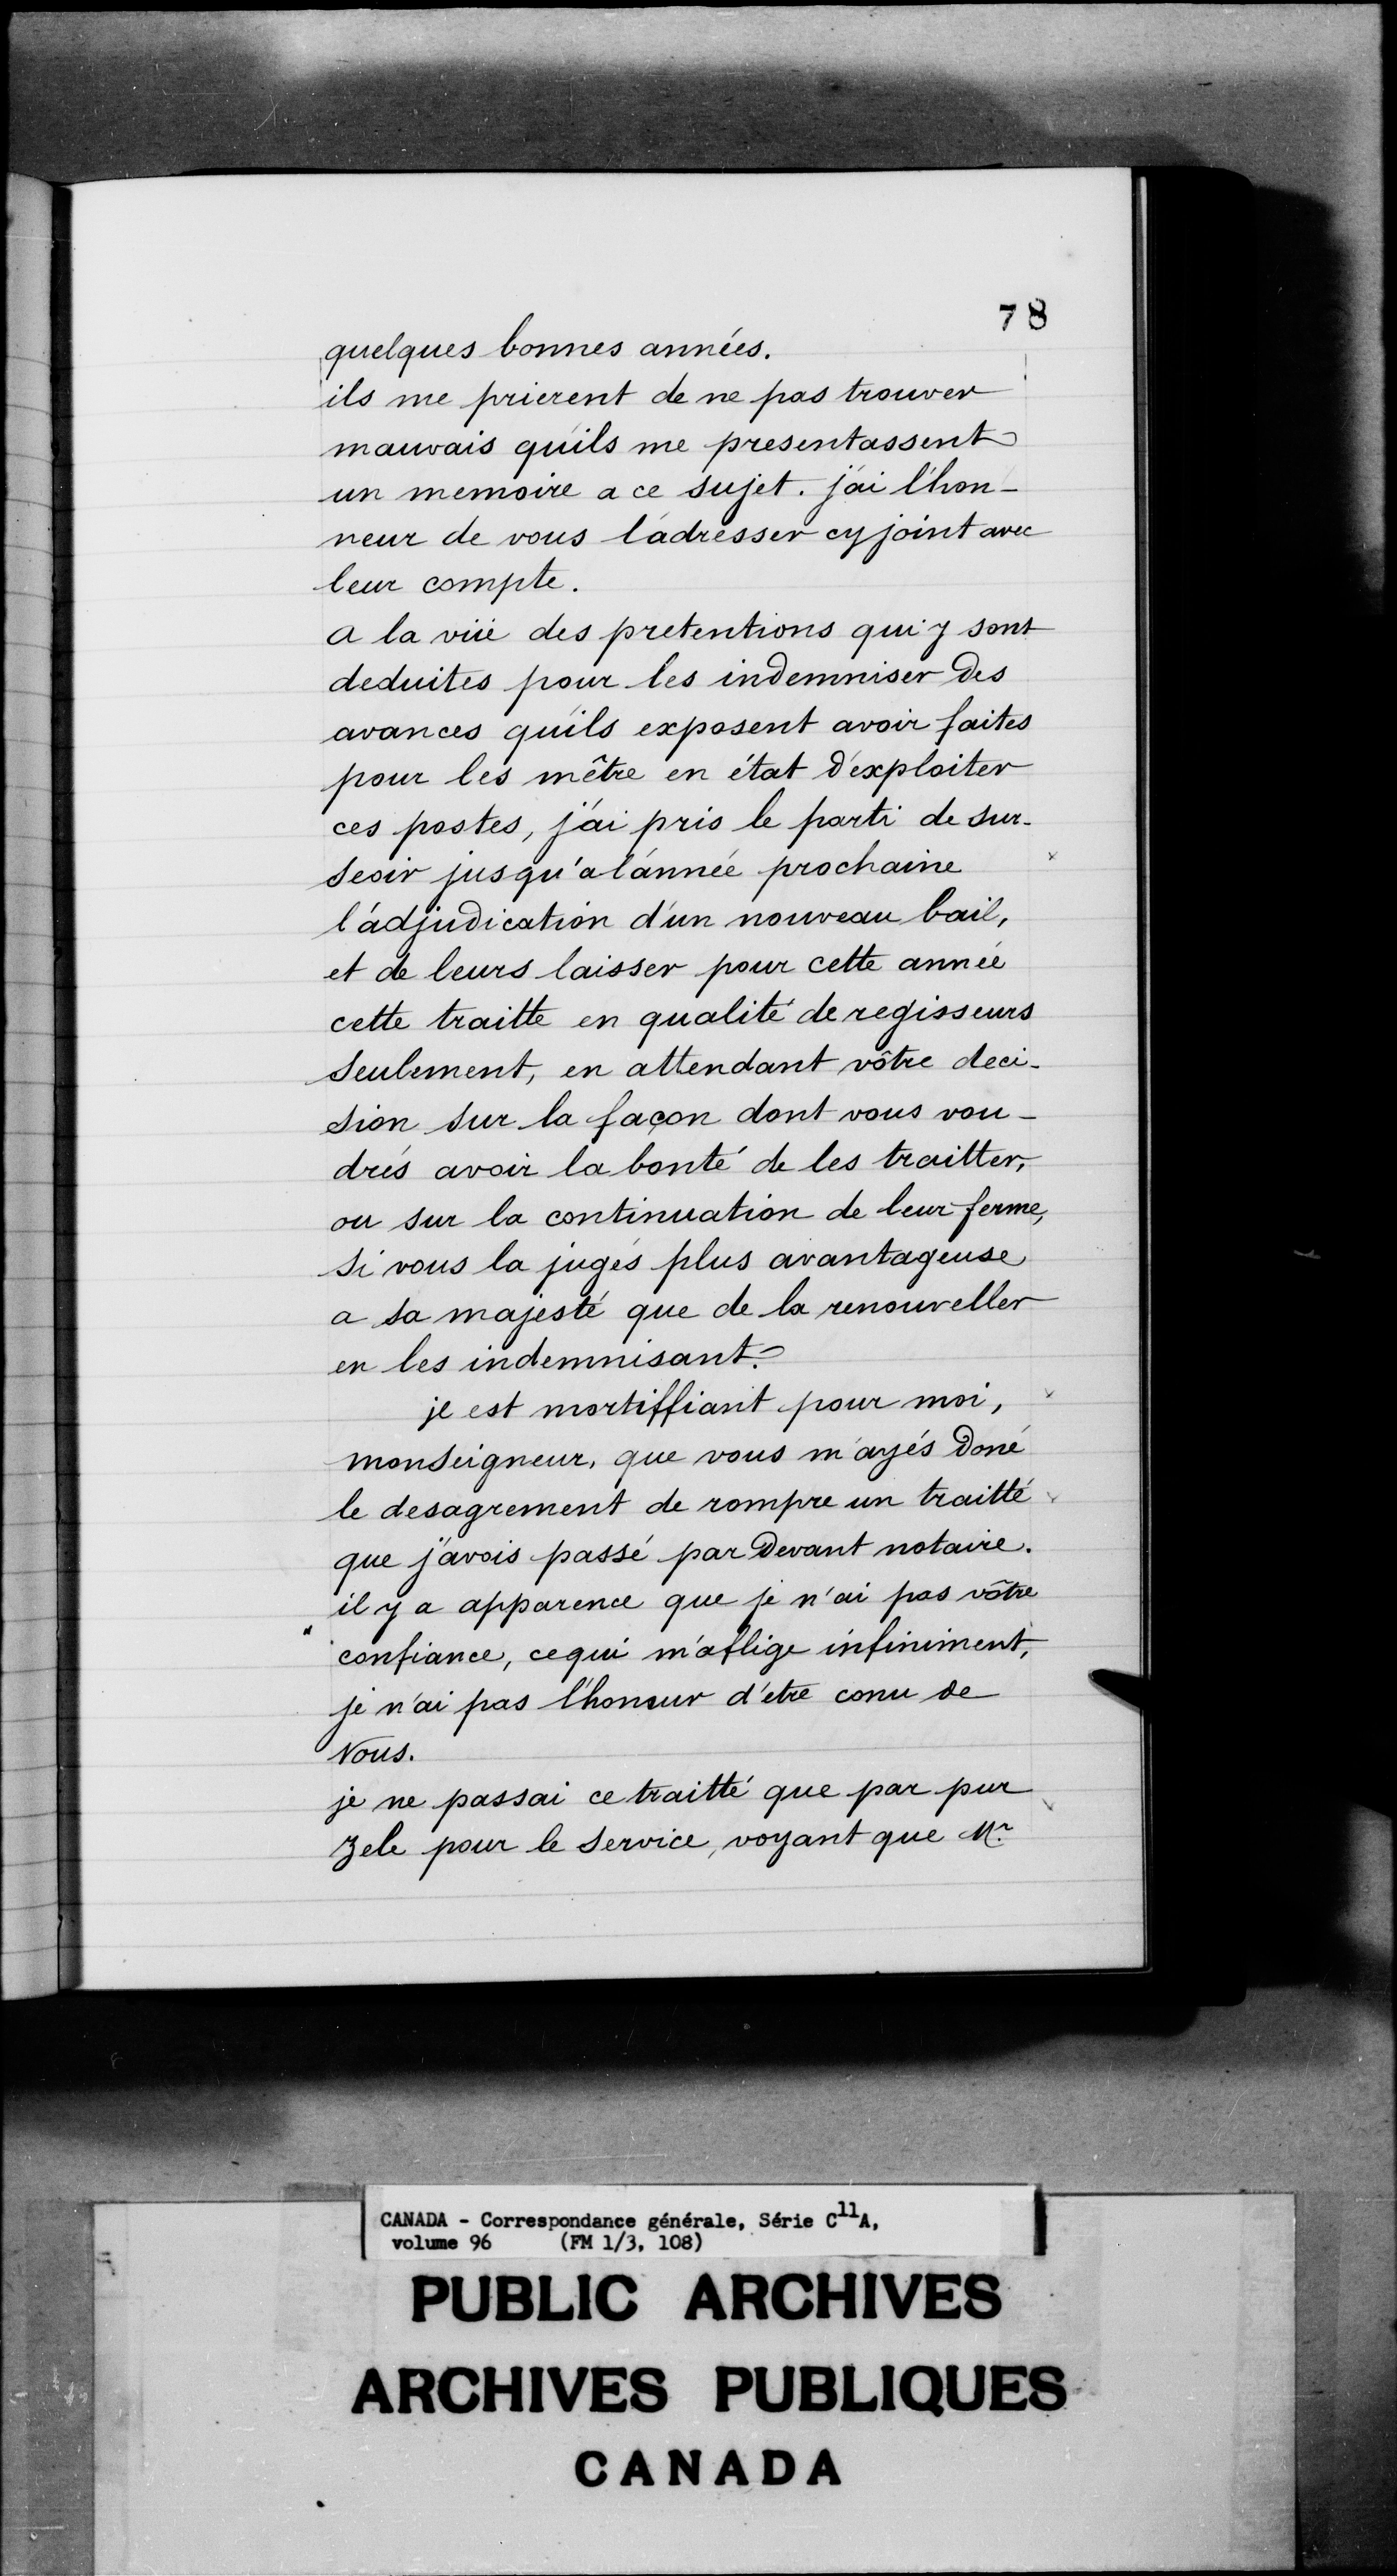 78
quelques bonnes années.
ils me prierent de ne pas trouver
mauvais qu'ils me presentassent
un memoire a ce sujet. j'ai l'hon-
neur de vous l'adresser cy joint avec
leur compte.
a la vüe des pretentions qui y sont
deduites pour les indemniser des
avances qu'ils exposent avoir faites
pour les mêtre en état d'exploiter
ces postes, j'ai pris le parti de sur-
seoir jusqu'a l'année prochaine
l'adjudication d'un nouveau bail,
et de leurs laisser pour cette année
cette traitte en qualité de regisseurs
seulement, en attendant vôtre deci-
sion sur la façon dont vous vou-
drés avoir la bonté de les traitter,
ou sur la continuation de leur ferme,
si vous la jugés plus avantageuse
a sa majesté que de la renouveller
en les indemnisant.
je est mortiffiant pour moi,
monseigneur, que vous m'ayés doné
le desagrement de rompre un traitté
que j'avois passé par devant notaire.
il y a apparence que je n'ai pas vôtre
confiance, ce qui m'aflige infiniment,
je n'ai pas l'honeur d'etre conu de
vous.
je ne passai ce traitté que par pur
zele pour le service, voyant que Mr.
CANADA - Correspondance générale, Série C11A,
volume 96 (FM 1/3, 108)
PUBLIC ARCHIVES
ARCHIVES PUBLIQUES
CANADA